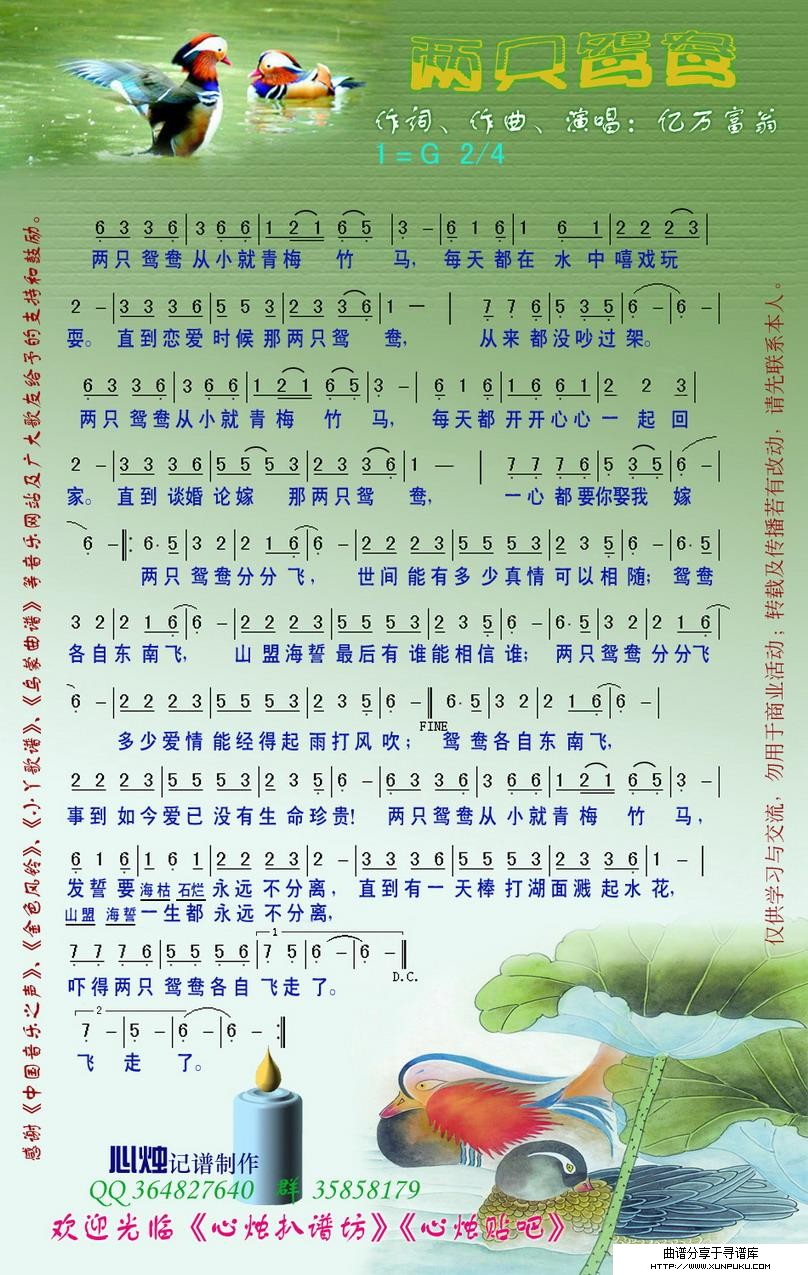 两只鸳鸯
作词、作曲、演唱：亿万富翁
1=G 2/4
6 3 3 6|3 6 6|1 2 1 6 5|3 -|6 1 6|1 6 1|2 2 2 3|
两只 鸳鸯从小就青梅 竹 马， 每天都在 水 中嘻戏玩
2 -|3 3 3 6|5 5 3|2 3 3 6|1 —| 7 7 6|5 3 5|6 -|6 -|
耍。 直到恋爱时候那两只鸳 鸯， 从来都没吵过架。
6 3 3 6|3 6 6|1 2 1 6 5|3 -|6 1 6|1 6 6 1|2 2 3|
两只 鸳鸯从小就 青梅 竹 马， 每天都 开开心心一 起 回
2 -|3 3 3 6|5 5 5 3|2 3 3 6|1 —| 7 7 7 6|5 3 5|6 -|
家。 直到 谈婚 论嫁 那两只鸳 鸯， 一心都要你娶我 嫁
6 -‖: 6· 5|3 2|2 1 6|6 -|2 2 2 3|5 5 5 3|2 3 5|6 -|6· 5|
两只 鸳鸯分分 飞， 世间 能有多 少真情可以相随； 鸳鸯
3 2|2 1 6|6 -|2 2 2 3|5 5 5 3|2 3 5|6 -|6· 5|3 2|2 1 6|
各自东 南飞， 山 盟海誓 最后有 谁能相信谁； 两只鸳鸯 分分飞
6 -|2 2 2 3|5 5 5 3|2 3 5|6 -‖6· 5|3 2|2 1 6|6 -|
FINE
多少爱情 能经得起 雨打风 吹； 鸳 鸯各自东 南飞，
2 2 2 3|5 5 5 3|2 3 5|6 -|6 3 3 6|3 6 6|1 2 1 6 5|3 -|
事到 如今爱已 没有生 命珍贵! 两只鸳鸯从 小就青 梅 竹 马，
6 1 6|1 6 1|2 2 2 3|2 -|3 3 3 6|5 5 5 3|2 3 3 6|1 -|
发誓 要 海枯 石烂 永远 不分离， 直到有一 天棒 打湖面溅 起水 花，
山盟 海誓 一生都 永远 不分离，
7 7 7 6|5 5 5 6|7 5|6 -|6 -‖
1
D.C.
吓得两只 鸳鸯各自 飞走 了。
2
7 -|5 -|6 -|6 -:‖
飞 走 了。
感谢《中国音乐之声》、《金色风铃》、《小丫歌谱》、《乌蒙曲谱》等音乐网站及广大歌友给予的支持和鼓励。
仅供学习与交流，勿用于商业活动；转载及传播若有改动，请先联系本人。
心烛记谱制作
QQ 364827640 群 35858179
欢迎光临《心烛扒谱坊》《心烛贴吧》
曲谱分享于寻谱库
HTTP://WWW.XUNPUKU.COM